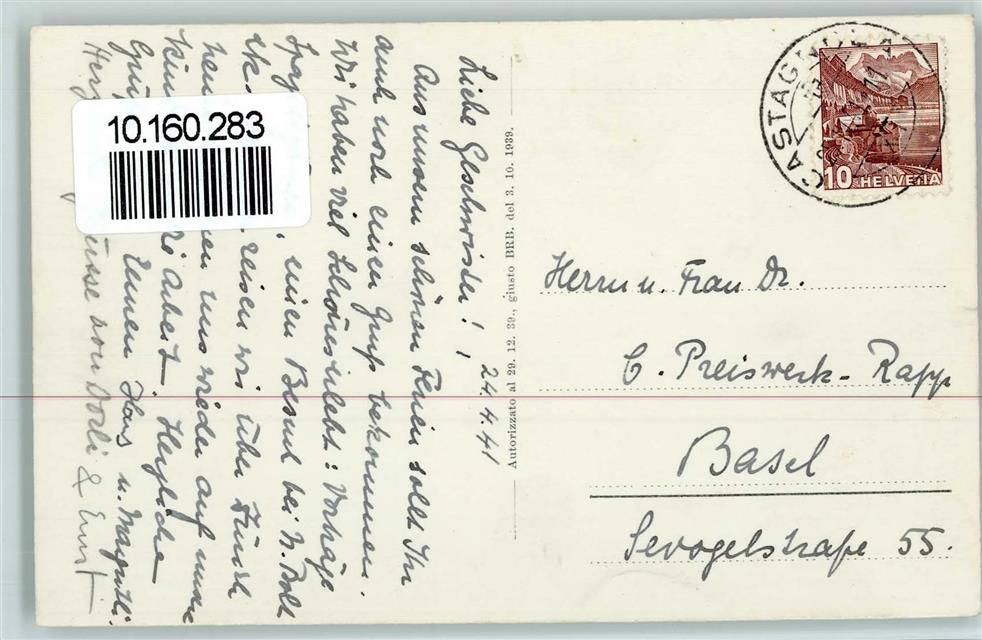 10.160.283
24.4.41
Liebe Geschwister!
Aus unsern schönen Ferien sollt Ihr
auch noch einen Gruß bekommen.
Wir haben viel Schönes erlebt: Vorträge
einen Besuch bei
reisen wir über Zürich
uns wieder auf unsere
Arbeit. Herzliche
Euren Hans u. Margritli.
Herz grüsse von Dorli & Ernst
Autorizzato al 29. 12. 39., giusto BRB. del 3. 10. 1939.
CASTAGNOLA
10 HELVETIA
Herrn u. Frau Dr.
C. Preiswerk-Rapp
Basel
Sevogelstraße 55.